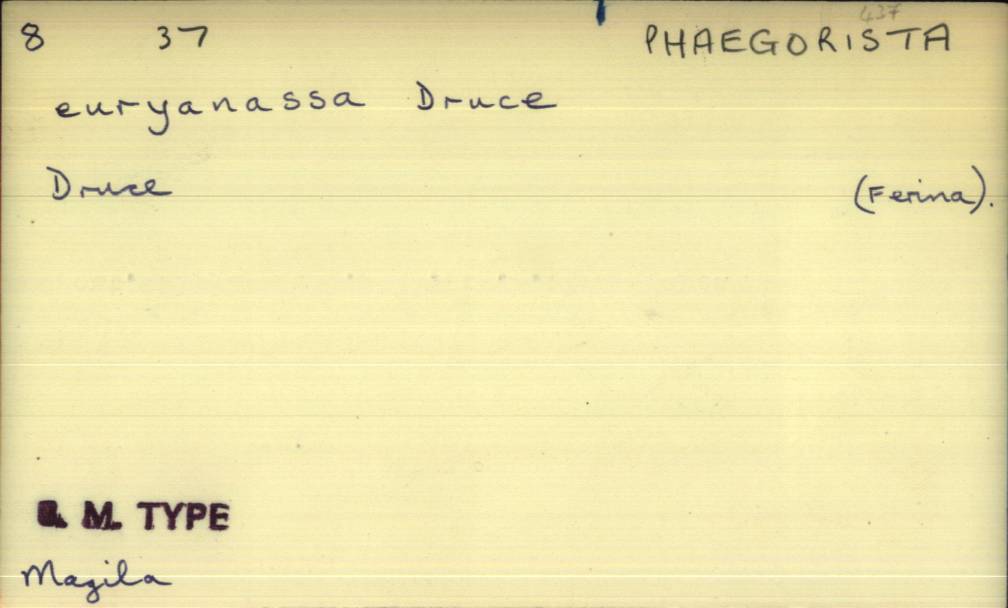 437
8 37 PHAEGORISTA
euryanassa Druce
Druce (Ferina).
M. TYPE
Magila